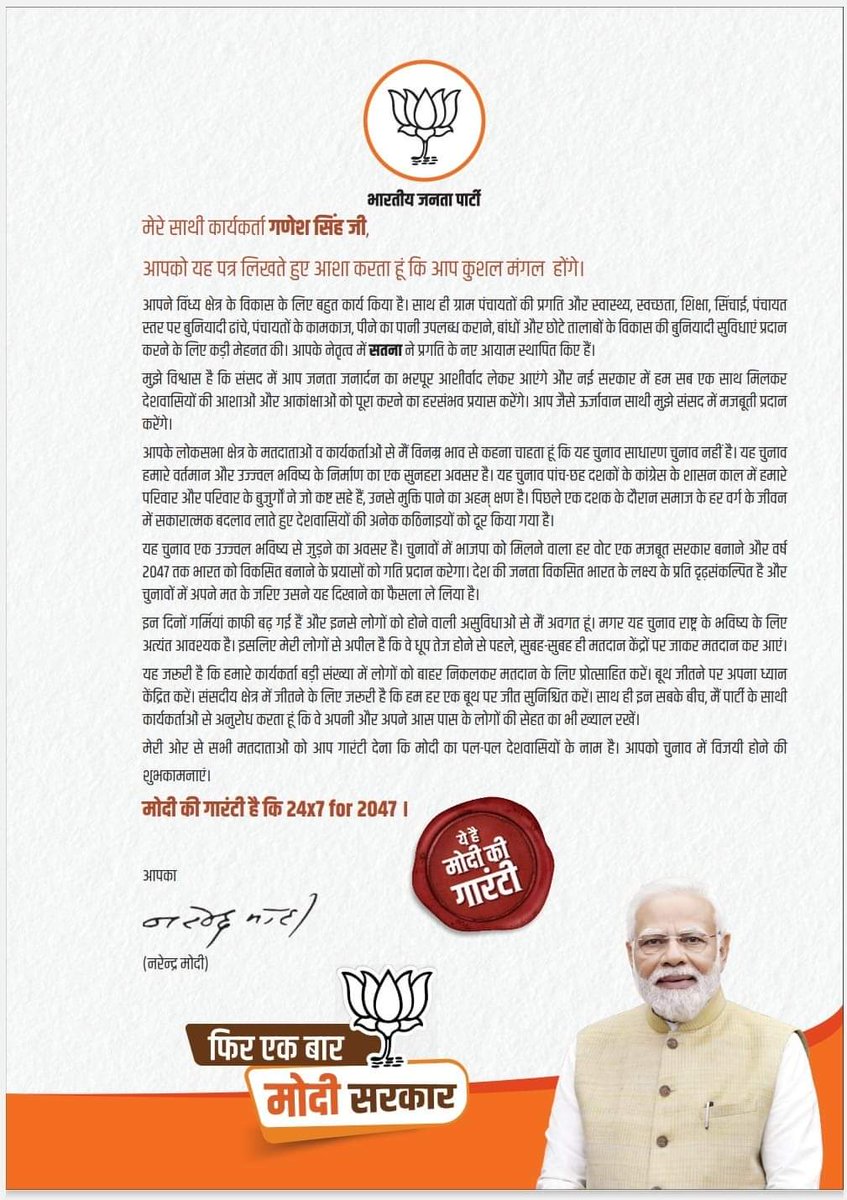 भारतीय जनता पार्टी
मेरे साथी कार्यकर्ता गणेश सिंह जी,
आपको यह पत्र लिखते हुए आशा करता हूं कि आप कुशल मंगल होंगे।
आपने विंध्य क्षेत्र के विकास के लिए बहुत कार्य किया है। साथ ही ग्राम पंचायतों की प्रगति और स्वास्थ्य, स्वच्छता, शिक्षा, सिंचाई, पंचायत
स्तर पर बुनियादी ढांचे, पंचायतों के कामकाज, पीने का पानी उपलब्ध कराने, बांधों और छोटे तालाबों के विकास की बुनियादी सुविधाएं प्रदान
करने के लिए कड़ी मेहनत की। आपके नेतृत्व में सतना ने प्रगति के नए आयाम स्थापित किए हैं।
मुझे विश्वास है कि संसद में आप जनता जनार्दन का भरपूर आशीर्वाद लेकर आएंगे और नई सरकार में हम सब एक साथ मिलकर
देशवासियों की आशाओं और आकांक्षाओं को पूरा करने का हरसंभव प्रयास करेंगे। आप जैसे ऊर्जावान साथी मुझे संसद में मजबूती प्रदान
करेंगे।
आपके लोकसभा क्षेत्र के मतदाताओं व कार्यकर्ताओं से मैं विनम्र भाव से कहना चाहता हूं कि यह चुनाव साधारण चुनाव नहीं है। यह चुनाव
हमारे वर्तमान और उज्ज्वल भविष्य के निर्माण का एक सुनहरा अवसर है। यह चुनाव पांच-छह दशकों के कांग्रेस के शासन काल में हमारे
परिवार और परिवार के बुजुर्गों ने जो कष्ट सहे हैं, उनसे मुक्ति पाने का अहम् क्षण है। पिछले एक दशक के दौरान समाज के हर वर्ग के जीवन
में सकारात्मक बदलाव लाते हुए देशवासियों की अनेक कठिनाइयों को दूर किया गया है।
यह चुनाव एक उज्ज्वल भविष्य से जुड़ने का अवसर है। चुनावों में भाजपा को मिलने वाला हर वोट एक मजबूत सरकार बनाने और वर्ष
2047 तक भारत को विकसित बनाने के प्रयासों को गति प्रदान करेगा। देश की जनता विकसित भारत के लक्ष्य के प्रति दृढ़संकल्पित है और
चुनावों में अपने मत के जरिए उसने यह दिखाने का फैसला ले लिया है।
इन दिनों गर्मियां काफी बढ़ गई हैं और इनसे लोगों को होने वाली असुविधाओं से मैं अवगत हूं। मगर यह चुनाव राष्ट्र के भविष्य के लिए
अत्यंत आवश्यक है। इसलिए मेरी लोगों से अपील है कि वे धूप तेज होने से पहले, सुबह-सुबह ही मतदान केंद्रों पर जाकर मतदान कर आएं।
यह जरूरी है कि हमारे कार्यकर्ता बड़ी संख्या में लोगों को बाहर निकलकर मतदान के लिए प्रोत्साहित करें। बूथ जीतने पर अपना ध्यान
केंद्रित करें। संसदीय क्षेत्र में जीतने के लिए जरूरी है कि हम हर एक बूथ पर जीत सुनिश्चित करें। साथ ही इन सबके बीच, मैं पार्टी के साथी
कार्यकर्ताओं से अनुरोध करता हूं कि वे अपनी और अपने आस पास के लोगों की सेहत का भी ख्याल रखें।
मेरी ओर से सभी मतदाताओं को आप गारंटी देना कि मोदी का पल-पल देशवासियों के नाम है। आपको चुनाव में विजयी होने की
शुभकामनाएं।
मोदी की गारंटी है कि 24x7 for 2047 ।
ये है
मोदी की
गारंटी
आपका
नरेन्द्र मोदी
(नरेन्द्र मोदी)
फिर एक बार
मोदी सरकार